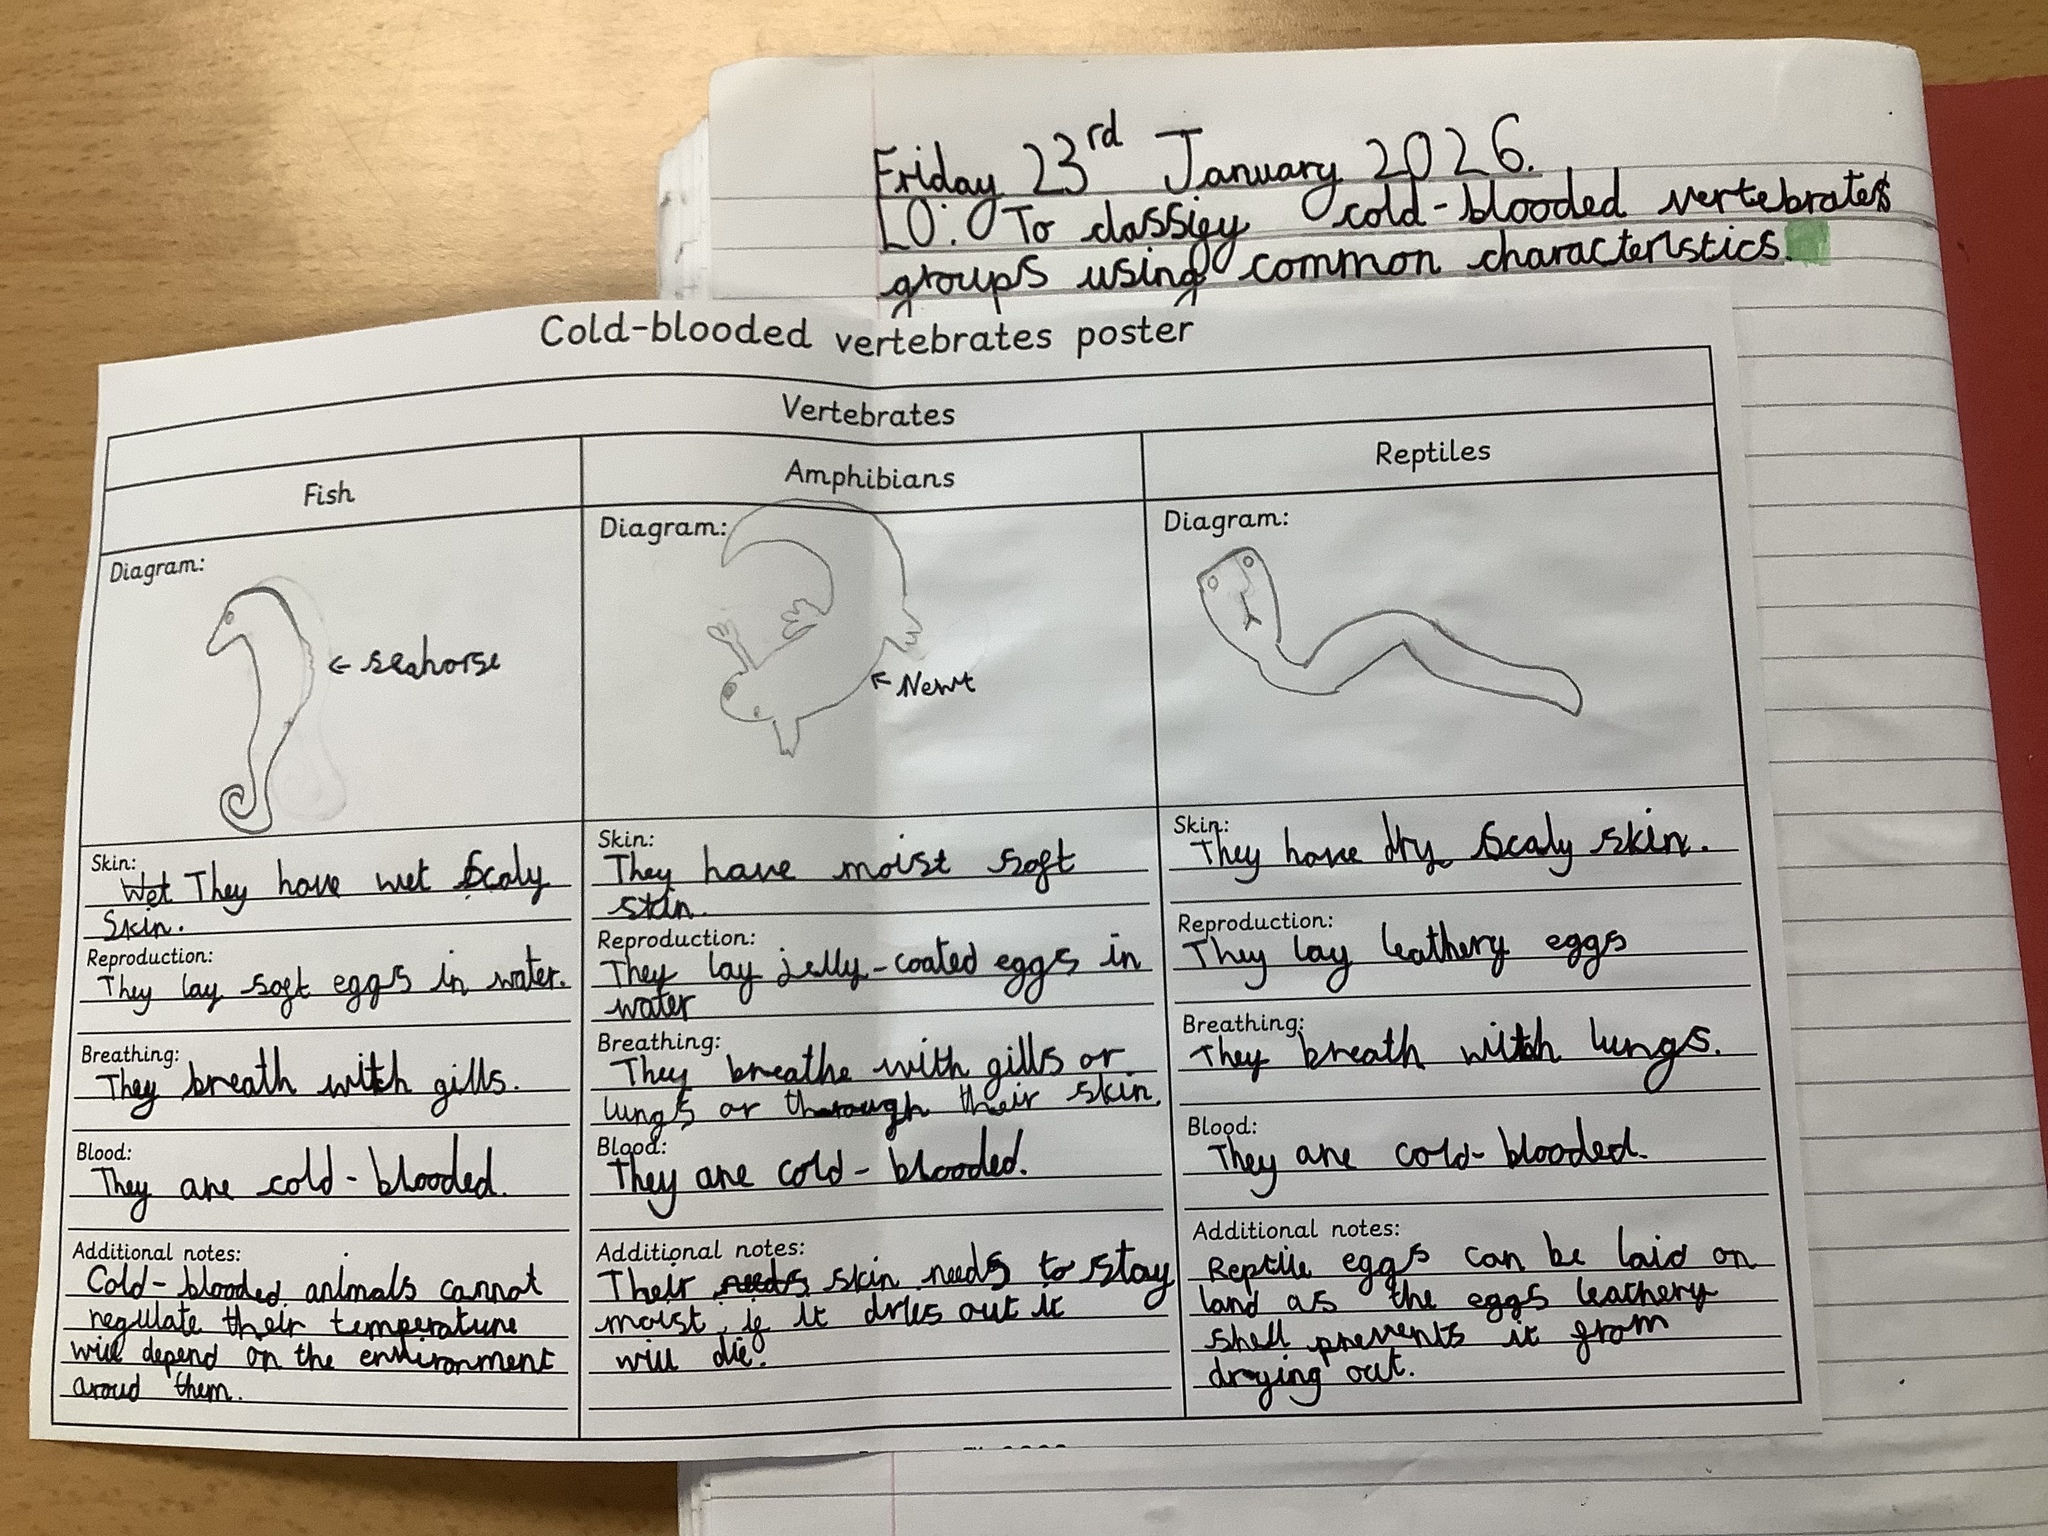 Friday 23rd January 2026.
LO: To classify cold-blooded vertebrates
groups using common characteristics.
Cold-blooded vertebrates poster
Vertebrates
Fish
Amphibians
Reptiles
Diagram:
seahorse
Diagram:
Newt
Diagram:
Skin:
Wet They have wet scaly
skin.
Reproduction:
They lay soft eggs in water.
Breathing:
They breath with gills.
Blood:
They are cold-blooded.
Additional notes:
Cold-blooded animals cannot
regulate their temperature
will depend on the environment
aroud them.
Skin:
They have moist soft
skin.
Reproduction:
They lay jelly-coated eggs in
water
Breathing:
They breathe with gills or
lungs or through their skin.
Blood:
They are cold-blooded.
Additional notes:
Their needs skin needs to stay
moist, if it dries out it
will die.
Skin:
They have dry scaly skin.
Reproduction:
They lay leathery eggs
Breathing:
They breath with lungs.
Blood:
They are cold-blooded.
Additional notes:
Reptile eggs can be laid on
land as the eggs leathery
shell prevents it from
drying out.